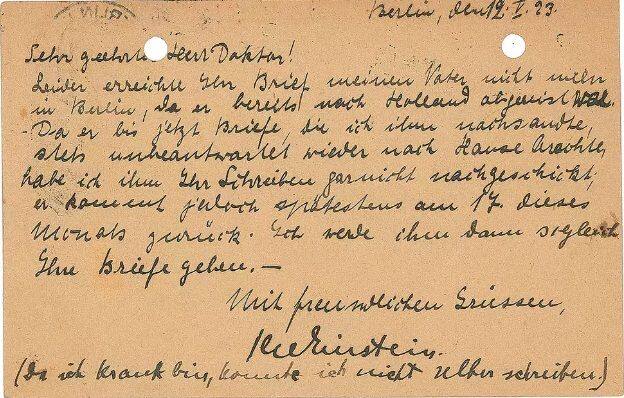 Berlin, den 12. V. 23.
Sehr geehrter Herr Doktor!
Leider erreichte Ihr Brief meinen Vater nicht mehr
in Berlin, da er bereits nach Holland abgereist war.
Da er bis jetzt Briefe, die ich ihm nachsandte,
stets unbeantwortet wieder nach Hause brachte,
habe ich ihm Ihr Schreiben gar nicht nachgeschickt;
er kommt jedoch spätestens am 17. dieses
Monats zurück. Ich werde ihm dann sogleich
Ihre Briefe geben.—
Mit freundlichen Grüssen,
Ilse Einstein.
(Da ich krank bin, konnte ich nicht selber schreiben.)